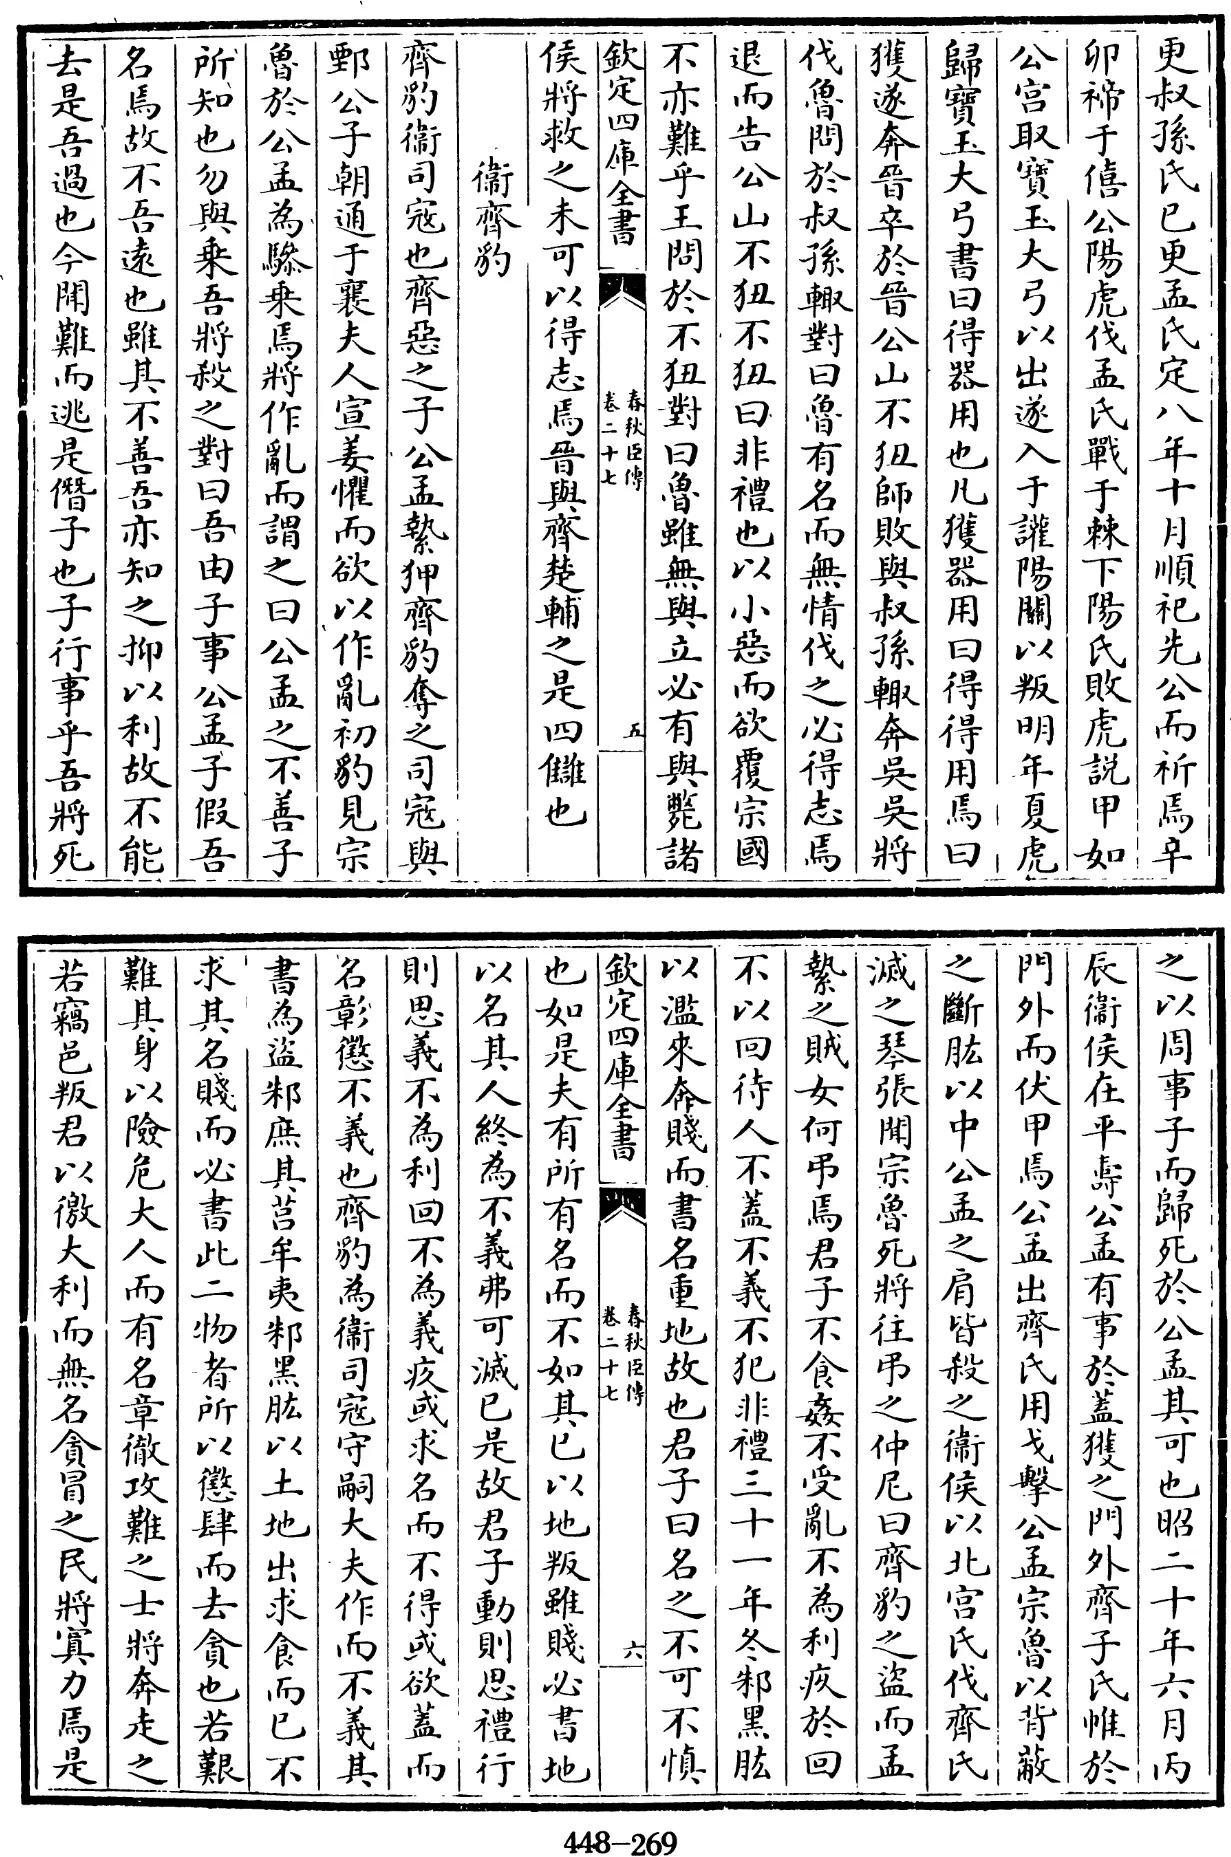 更叔孫氏已更孟氏定八年十月順祀先公而祈焉辛
卯禘于僖公陽虎伐孟氏戰于棘下陽氏敗虎説甲如
公宫取寶玉大弓以出遂入于讙陽關以叛明年夏虎
歸寶玉大弓書曰得器用也凡獲器用曰得得用焉曰
獲遂奔晉卒於晉公山不狃師敗與叔孫輙奔吳吳將
伐魯問於叔孫輙對曰魯有名而無情伐之必得志焉
退而告公山不狃不狃曰非禮也以小惡而欲覆宗國
不亦難乎王問於不狃對曰魯雖無與立必有與斃諸
欽定四庫全書
春秋臣傳
卷二十七
五
侯將救之未可以得志焉晉與齊楚輔之是四讎也
衞齊豹
齊豹衞司寇也齊惡之子公孟縶狎齊豹奪之司寇與
鄄公子朝通于襄夫人宣姜懼而欲以作亂初豹見宗
魯於公孟為驂乗焉將作亂而謂之曰公孟之不善子
所知也勿與乗吾將殺之對曰吾由子事公孟子假吾
名焉故不吾逺也雖其不善吾亦知之抑以利故不能
去是吾過也今聞難而逃是僭子也子行事乎吾將死
之以周事子而歸死於公孟其可也昭二十年六月丙
辰衞侯在平壽公孟有事於蓋獲之門外齊子氏帷於
門外而伏甲焉公孟出齊氏用戈擊公孟宗魯以背蔽
之斷肱以中公孟之肩皆殺之衞侯以北宮氏伐齊氏
滅之琴張聞宗魯死將往弔之仲尼曰齊豹之盗而孟
縶之賊女何弔焉君子不食姦不受亂不為利疚於回
不以回待人不蓋不義不犯非禮三十一年冬邾黑肱
以濫來奔賤而書名重地故也君子曰名之不可不慎
欽定四庫全書
春秋臣傳
卷二十七
六
也如是夫有所有名而不如其已以地叛雖賤必書地
以名其人終為不義弗可滅已是故君子動則思禮行
則思義不為利回不為義疚或求名而不得或欲蓋而
名彰懲不義也齊豹為衞司寇守嗣大夫作而不義其
書為盜邾庶其莒牟夷邾黑肱以土地出求食而已不
求其名賤而必書此二物者所以懲肆而去貪也若艱
難其身以險危大人而有名章徹攻難之士將奔走之
若竊邑叛君以徼大利而無名貪冒之民將寘力焉是
448-269